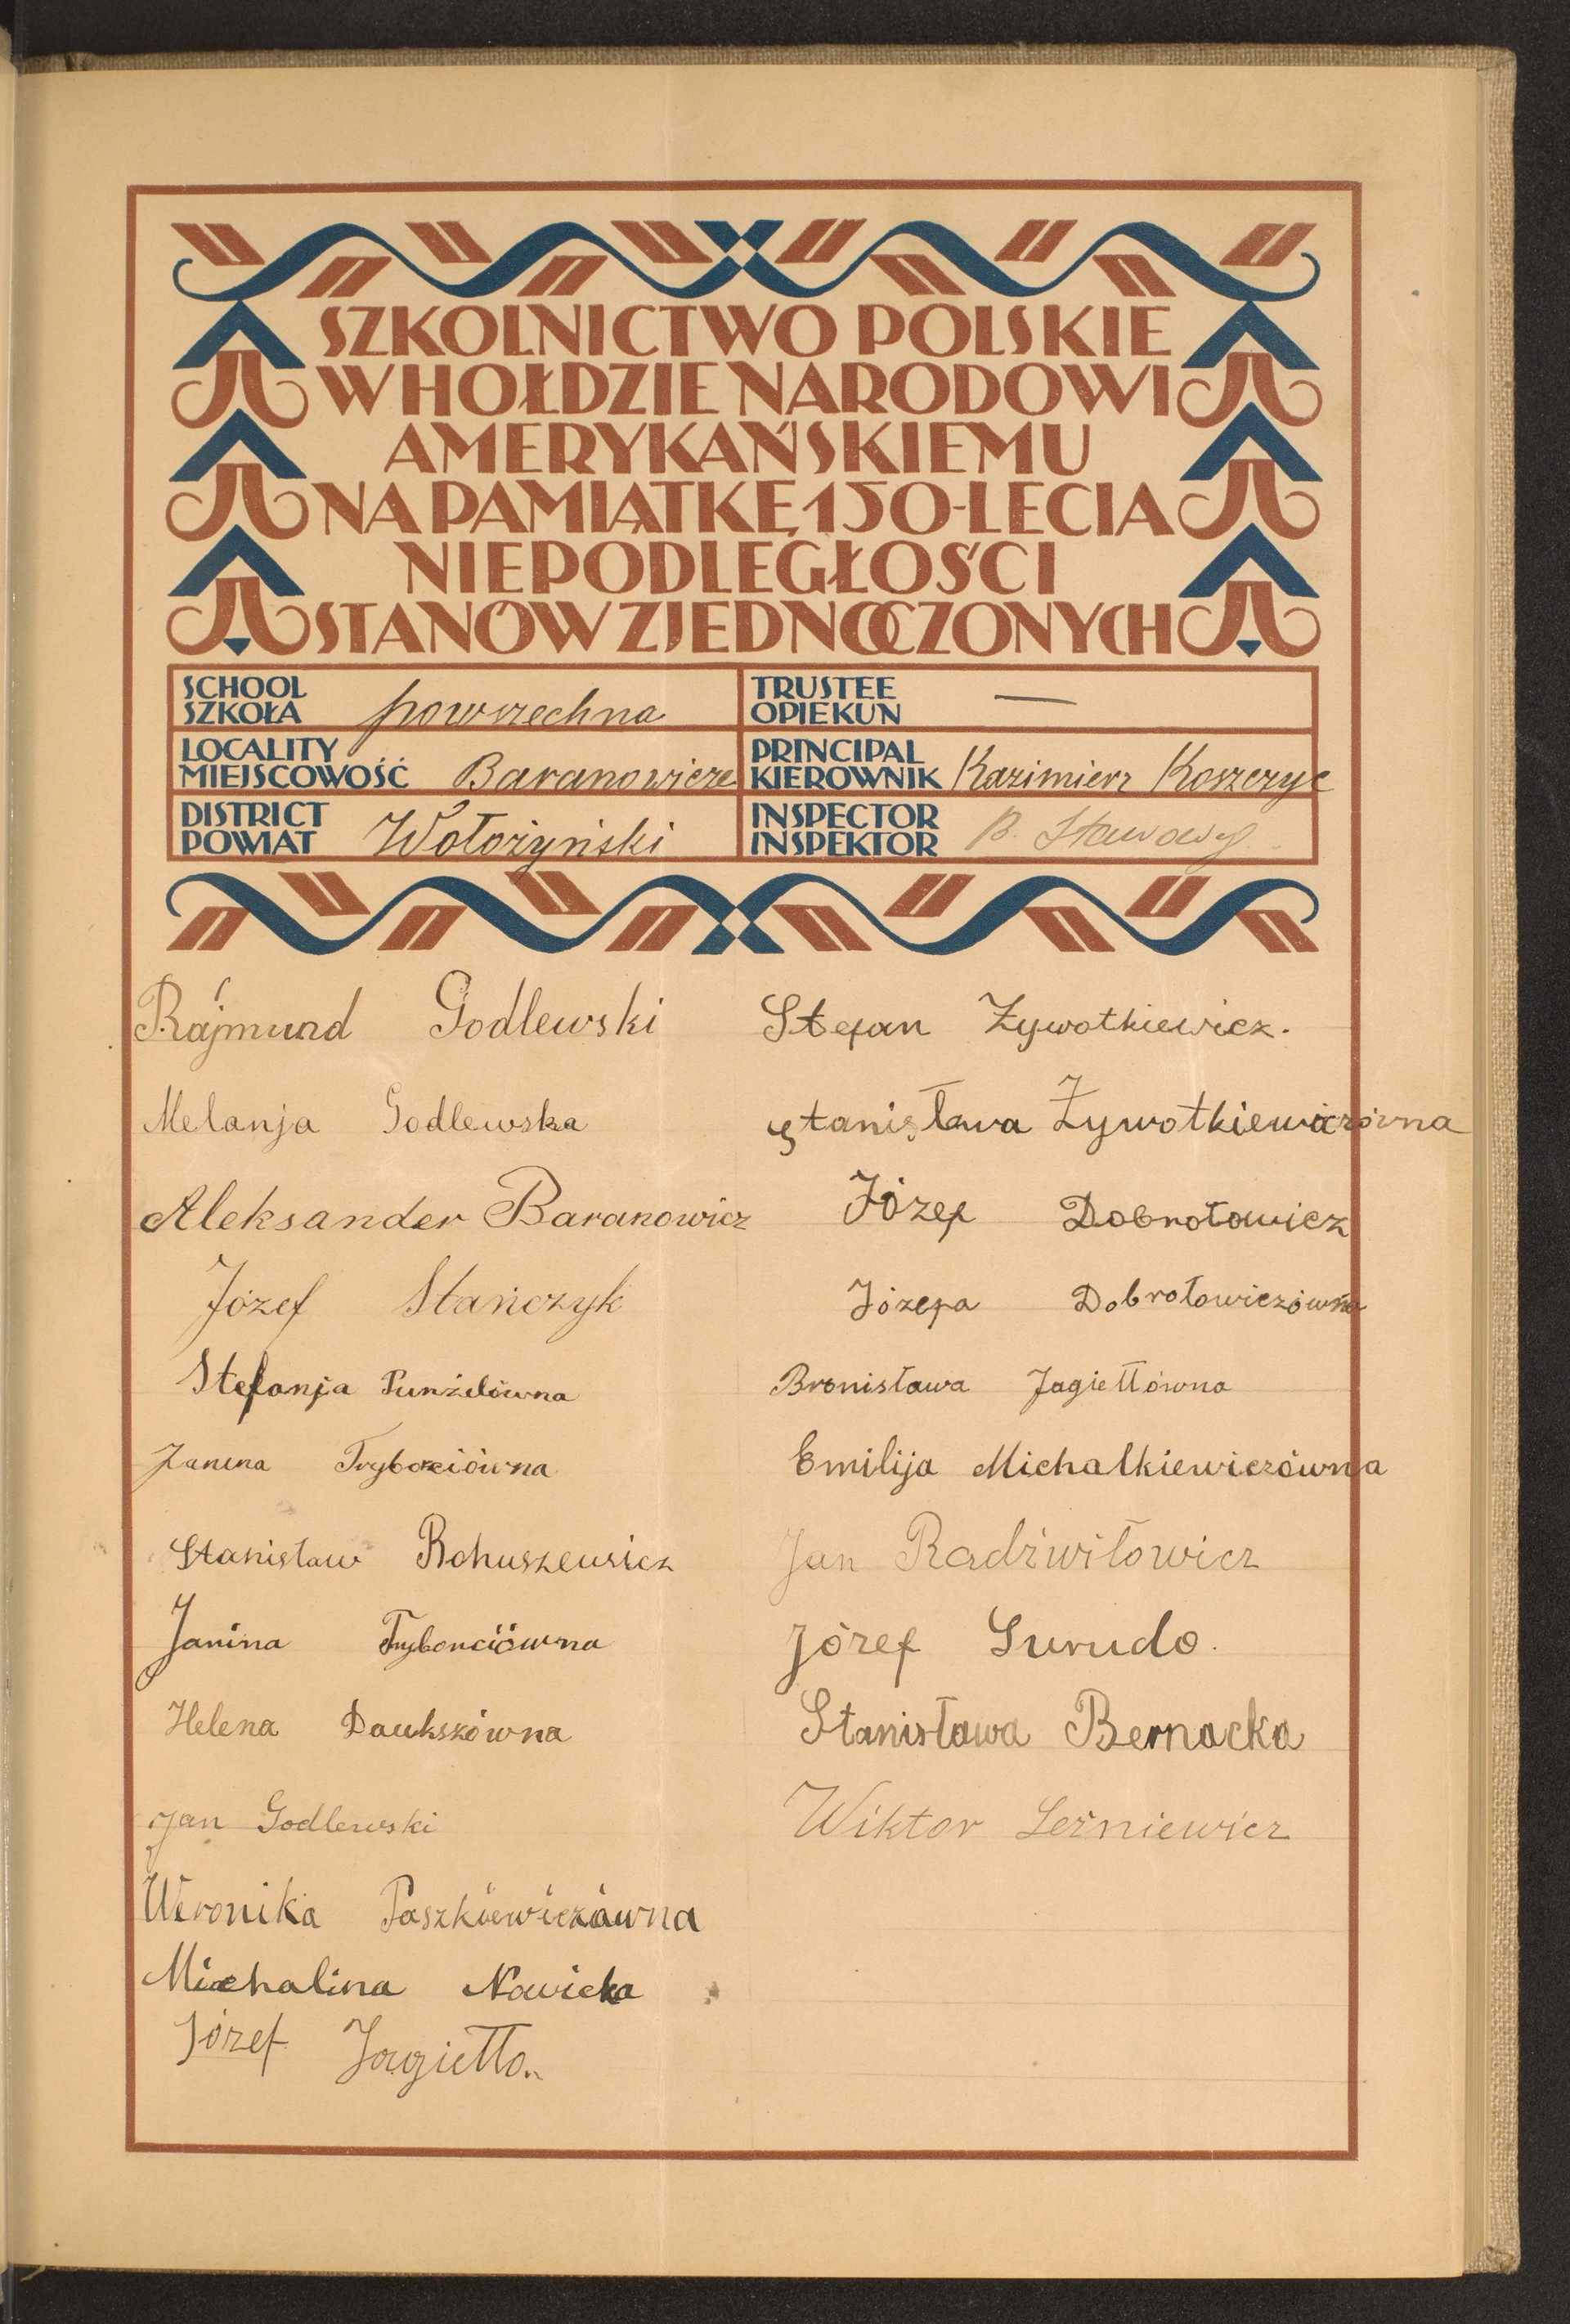 SZKOLNICTWO POLSKIE
W HOŁDZIE NARODOWI
AMERYKAŃSKIEMU
NA PAMIĄTKĘ 150-LECIA
NIEPODLEGŁOŚCI
STANÓW ZJEDNOCZONYCH
SCHOOL
SZKOŁA powszechna
TRUSTEE
OPIEKUN —
LOCALITY
MIEJSCOWOŚĆ Baranowicze
PRINCIPAL
KIEROWNIK Kazimierz Koszczyc
DISTRICT
POWIAT Wołożyński
INSPECTOR
INSPEKTOR B. Stawowy
Rajmund Godlewski
Melanja Godlewska
Aleksander Baranowicz
Józef Stańczyk
Stefanja Punżelówna
Janina
Stanisław Bohuszewicz
Janina
Helena Daukszówna
Jan Godlewski
Weronika Paszkiewiczówna
Michalina Nowicka
Józef Jagiełło
Stefan Żywotkiewicz.
Stanisława Żywotkiewiczówna
Józef Dobrołowicz
Józefa Dobrołowiczówna
Bronisława Jagiełłówna
Emilija Michalkiewiczówna
Jan Radziwiłowicz
Józef Surudo.
Stanisława Bernacka
Wiktor Leśniewicz